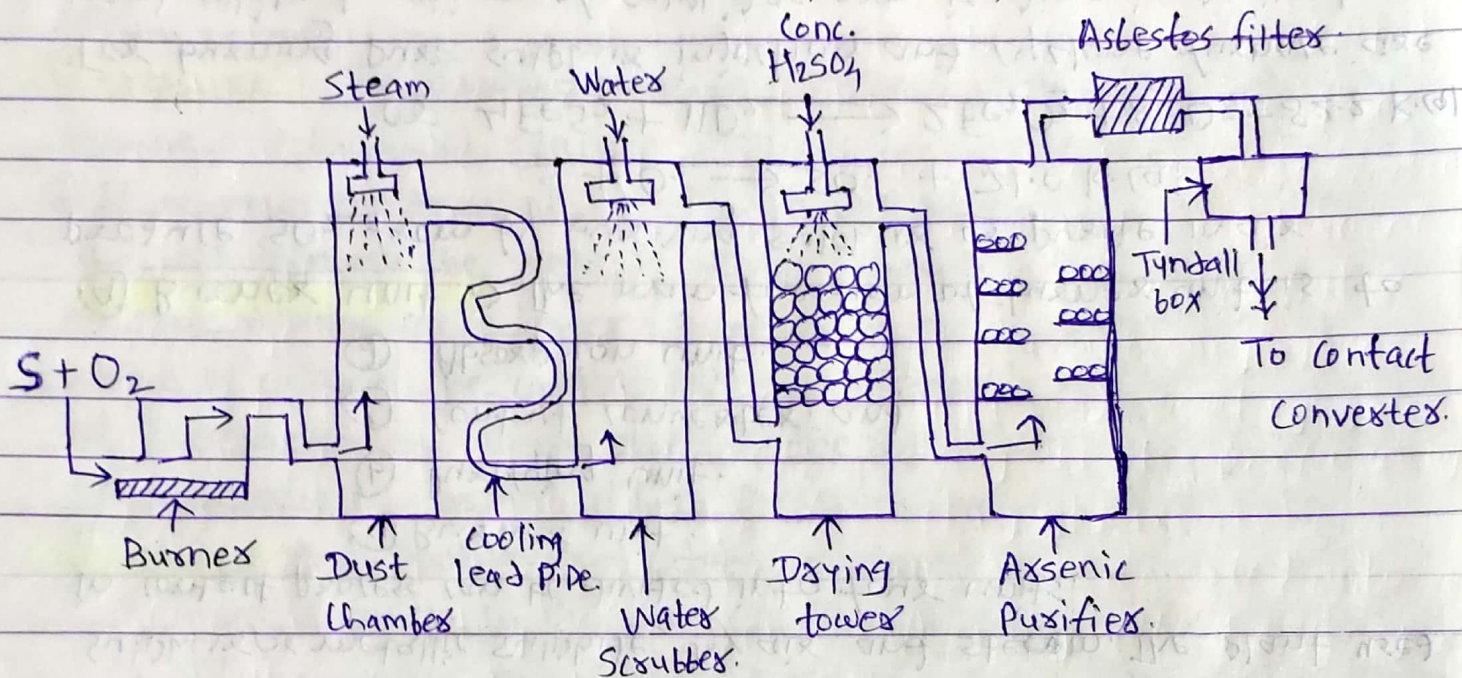 Conc.
H2SO4
Asbestos filter.
Steam
Water
Tyndall
box
To Contact
Converter.
S + O2
Burner
Dust
Chamber
Cooling
lead Pipe.
Water
Scrubber.
Drying
tower
Arsenic
Purifier.